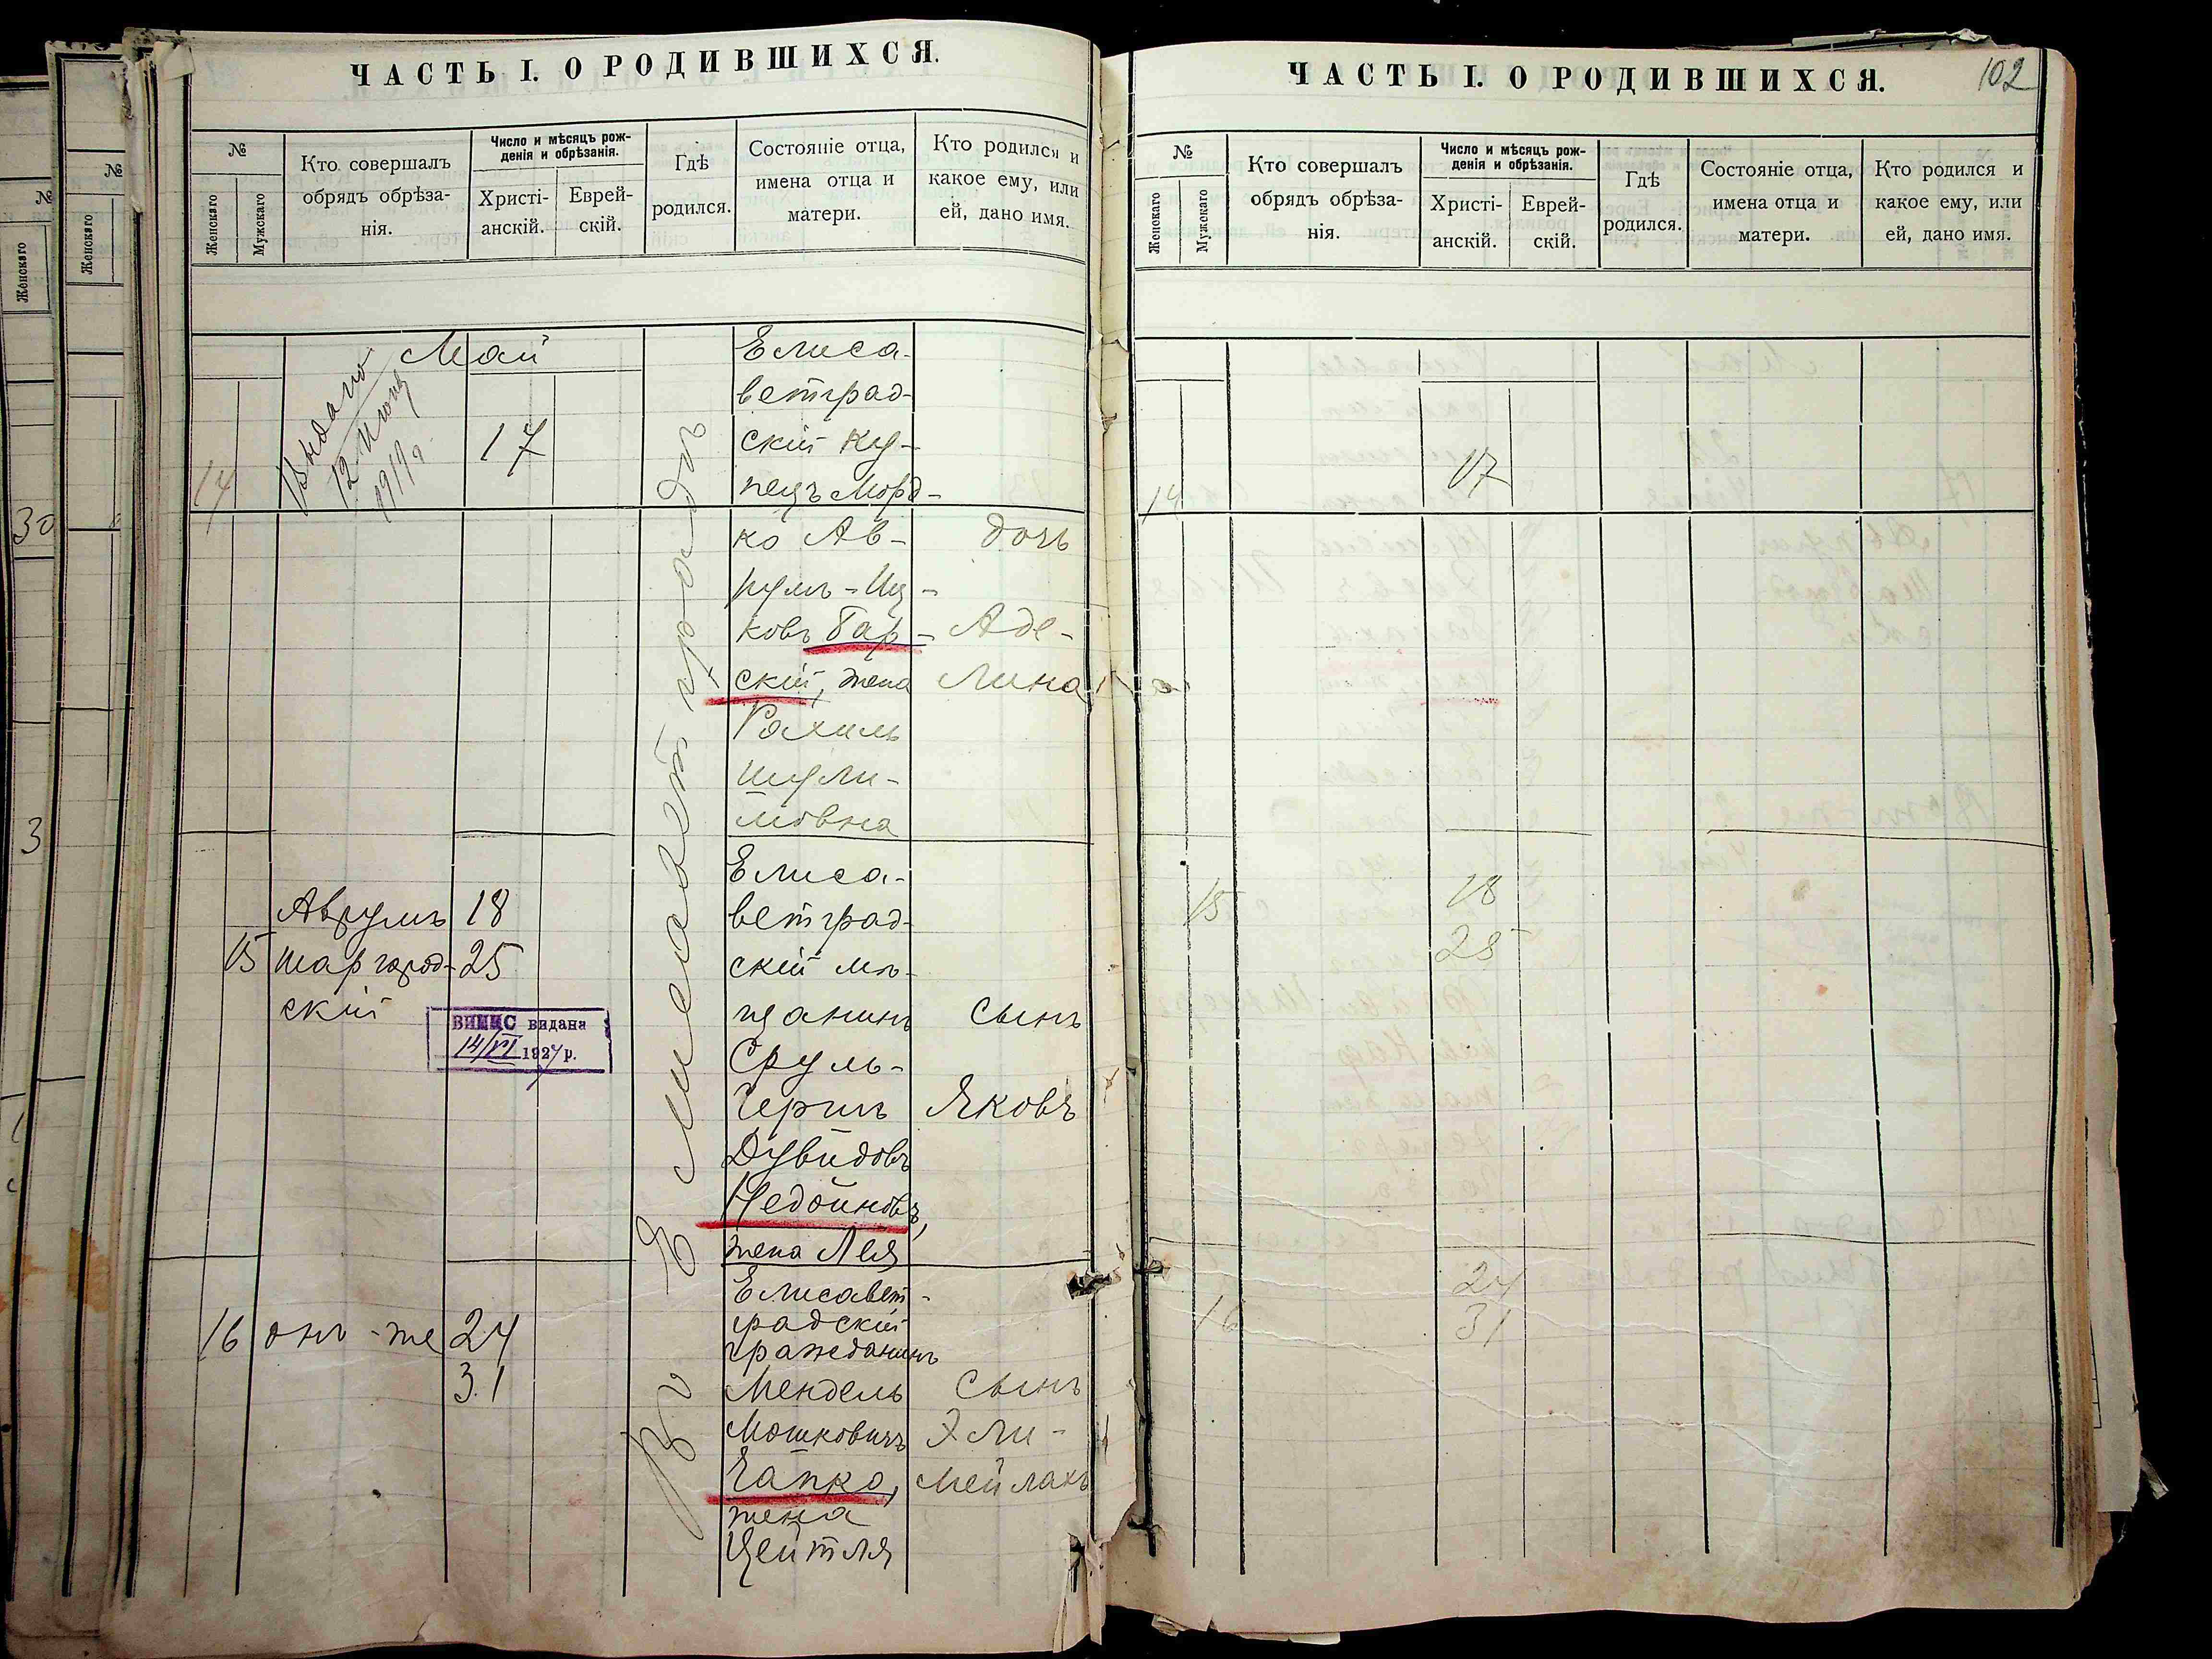 ЧАСТЬ I. О РОДИВШИХСЯ.
№
Женскаго
Мужскаго
Кто совершалъ
обрядъ обрѣза-
нія.
Число и мѣсяцъ рож-
денія и обрѣзанія.
Христі-
анскій.
Еврей-
скій.
Гдѣ
родился.
Состояніе отца,
имена отца и
матери.
Кто родился и
какое ему, или
ей, дано имя.
Май
14
Выдано
12
1919 г.
17
Въ Елисаветградѣ
Елиса-
ветград-
скій Ку-
пецъ Морд-
ко Ав-
румъ-Иц-
ковъ Гар-
скій, жена
Рахиль
Шули-
мовна
дочь
Аде-
лина
15
Аврумъ
Шаргород-
скій
18
25
ВИПИС видана
14/VI 1927 р.
Елиса-
ветград-
скій мѣ-
щанинъ
Сруль-
Гершъ
Дувидовъ
Недойновъ,
жена Лея
сынъ
Яковъ
16
онъ-же
24
31
Елисавет-
градскій
гражданинъ
Мендель
Мошковичъ
Чапко,
жена
Цейтля
сынъ
Эли-
мейлахъ
30
3
№
Женскаго
№
Женскаго
ЧАСТЬ I. О РОДИВШИХСЯ.
102
№
Женскаго
Мужскаго
Кто совершалъ
обрядъ обрѣза-
нія.
Число и мѣсяцъ рож-
денія и обрѣзанія.
Христі-
анскій.
Еврей-
скій.
Гдѣ
родился.
Состояніе отца,
имена отца и
матери.
Кто родился и
какое ему, или
ей, дано имя.
14
17
15
18
25
16
24
31